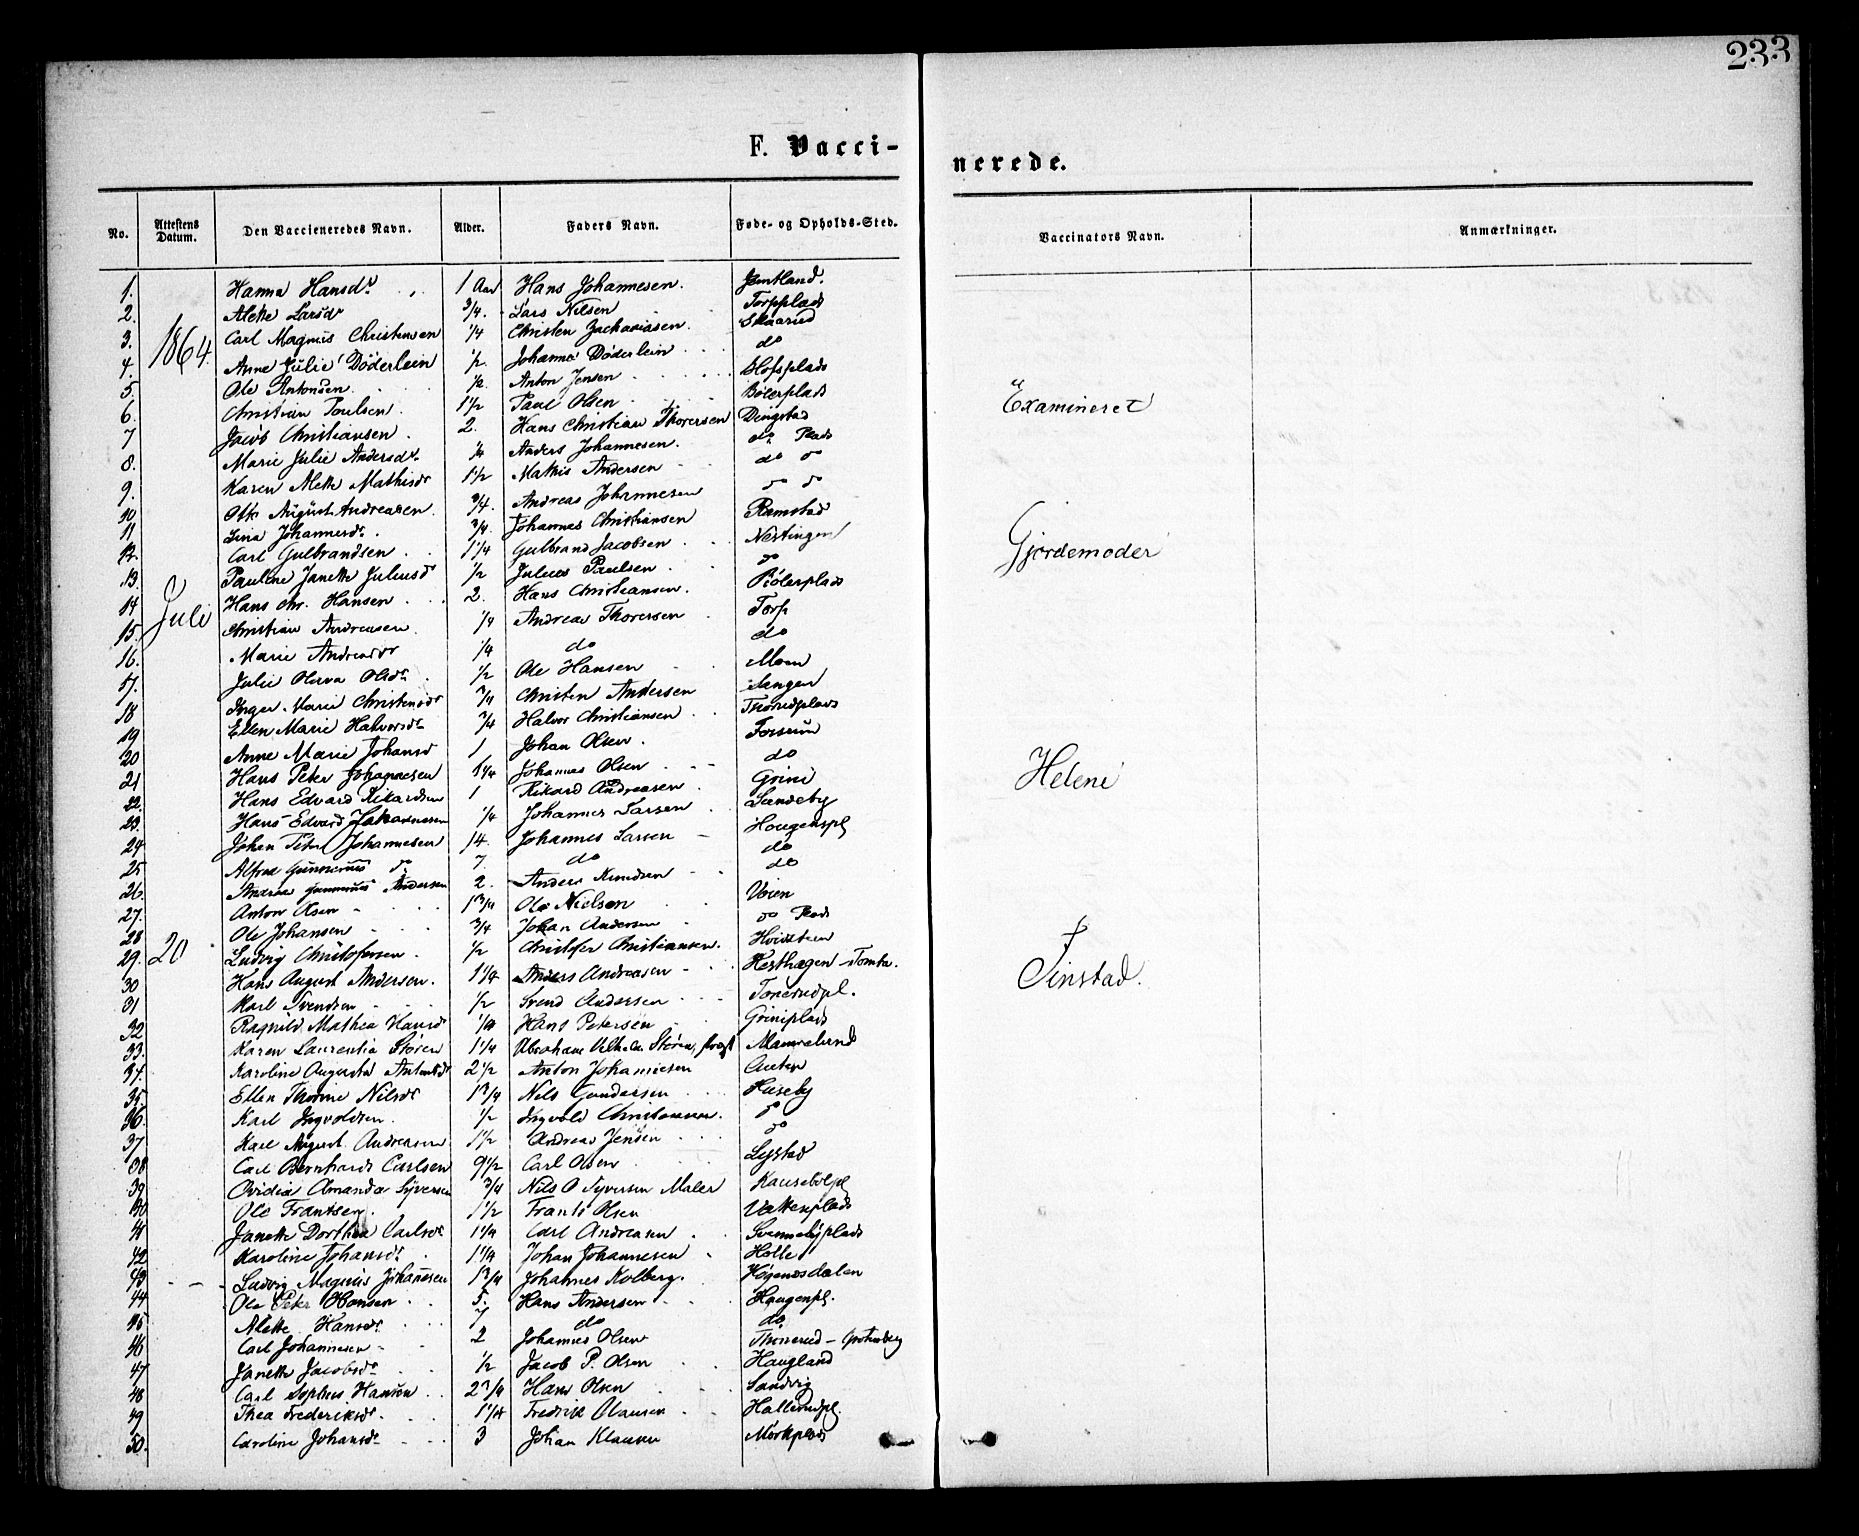 233
F. Vacci-
nerede.
No. Attestens Datum. Den Vaccieneredes Navn. Alder. Faders Navn. Føde- og Opholds-Sted. Vaccinators Navn. Anmærkninger.
1. Hanna Hansdr. 1 Aar Hans Johannesen. Jemtland.
2. Alette Larsdr 3/4. Lars Nilsen Torpplads
3. Carl Magnus Christensen 1/4 Christen Zachariasen. Skaarud
1864.
4. Anne Julie Döderlein 1/2 Johannes Döderlein do
5. Ole Antonsen 1/2. Anton Jensen Hofsplads
6. Christian Poulsen. 1 1/2 Paul Olsen Bölerplads
Examineret
7 Jacob Christiansen. 2. Hans Christian Thorersen Dingstad
8. Marie Julie Andersdr. 1/4 Anders Johannesen. do Plads
9. Karen Alette Mathisdr 1 1/2 Mathis Andersen do do
10 Otto August Andreasen. 3/4. Andreas Johannesen do do
11 Lina Johannesdr. 3/4. Johannes Christiansen Ramstad
12. Carl Gulbrandsen 1 1/4 Gulbrand Jacobsen Nestingen
Gjordemoder
13. Pauline Janette Juliusdr 1/2 Julius Paulsen do
14 Hans Chr. Hansen 2. Hans Christiansen. Bölerplads
Juli
15. Christian Andreasen. 1/4 Andreas Thorersen Torp
16. Marie Andreasdr 1/4 do do
17. Julie Oleva Olsdr 1/2 Ole Hansen Moen
18 Inger Marie Christensdr 3/4 Christen Andersen
19 Ellen Marie Halvorsdr 3/4 Halvor Christiansen Thorudplads
20 Anne Marie Johansdr 1 Johan Olsen. Fossum
21 Hans Peter Johannesen 1 1/4 Johannes Olsen do
Helene
22. Hans Edvard Rikardsen 1 Rikard Andreasen Grini
23. Hans Edvard Johannesen 1/4 Johannes Larsen Sandeby
24. Johan Peter Johannesen 14. Johannes Larsen Hougenspl
25 Alfred Gunnerius do 7. do do
26. Andreas Gunnerius Andersen 2. Anders Knudsen do
27. Anton Olsen 1 3/4 Ole Nielsen Voien
28 Ole Johansen 3/4 Johan Andersen do Plads
29. 20 Ludvig Christofersen 1/2 Christofer Christiansen. Hvidsteen
30 Hans August Andersen. 1 1/4 Anders Andreasen Hesthagen - Tomta.
Finstad.
31 Karl Svendsen 1/2 Svend Andersen Tonerudpl.
32 Ragnild Mathea Hansdr 1/4 Hans Petersen Griniplads
33. Karen Laurentia Stören 1 1/4 Abraham Vilhelm Stören,
34. Karoline Augusta Antonsdr 2 1/2 Anton Johannesen
35. Ellen Thorine Nilsdr 1 3/4 Nils Gundersen Huseby
36. Karl Ingvoldsen. 1/2 Ingvold Christiansen. do
37 Karl August Andreasen 1 1/2 Andreas Jensen do
38 Carl Bernhard Carlsen 9 1/2 Carl Olsen Lystad
39 Ovidia Amanda Syversen 3/4 Nils O Syversen Maler
40 Ole Frantsen. 1 1/2 Frants Olsen Vattenplads
41 Janette Dorthea Carlsdr 1 1/4 Carl Andreasen
42 Karoline Johansdr 1 1/4 Johan Johannesen Holte
43 Ludvig Magnus Johannesen 1 3/4 Johannes Kolberg.
44 Ole Peter Hansen 5. Hans Andersen Haugenpl.
45 Alette Hansdr. 7 do do
46 Carl Johannesen 2 Johannes Olsen
47 Janette Jacobsdr 1/2 Jacob P. Olsen Haugland
48 Carl Sophus Hansen 2 3/4 Hans Olsen Sandvig
49 Thea Frederiksdr. 1 1/4 Fredrik Olausen
50. Caroline Johansdr 3 Johan Klausen Mörkplads